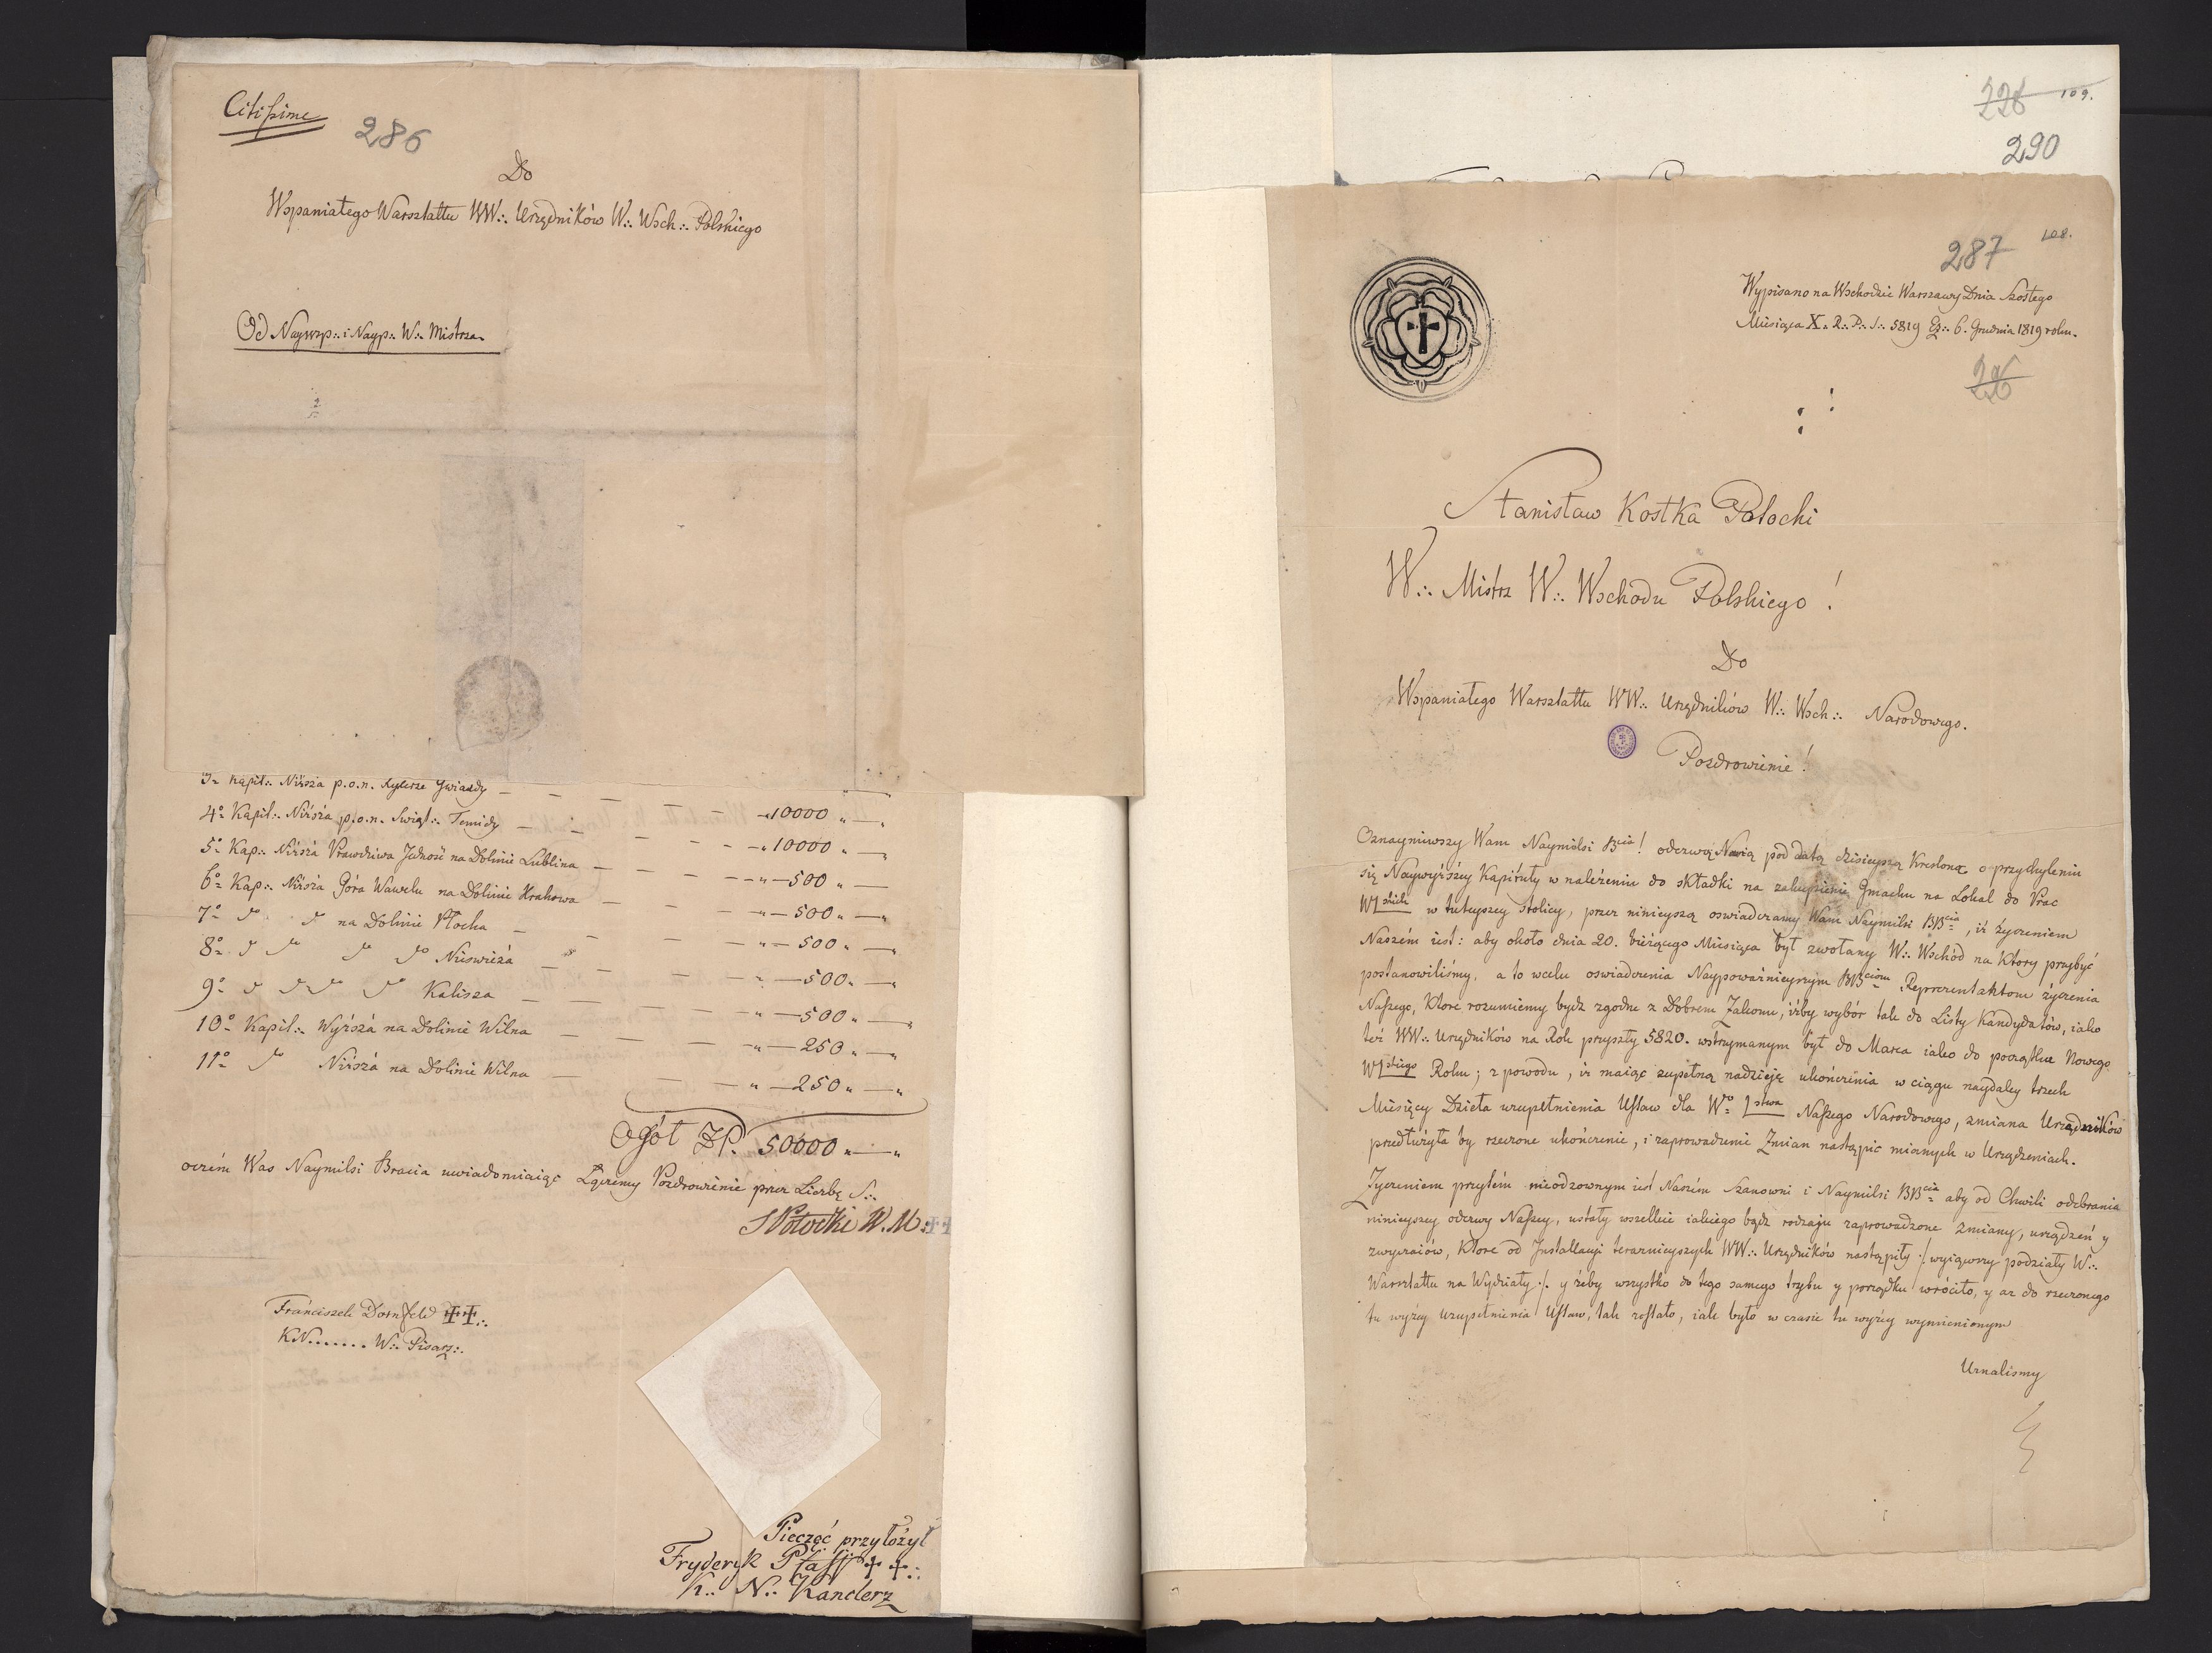 Citissime
286
Do
Wspaniałego Warsztattu WW∴ Urzędników W∴ Wsch∴ Polskiego
Od Naywsp∴ i Nayp∴ W∴ Mistrza
3º Kapit∴ Niższa p.o.n. Rycerze Gwiazdy — — — — — „10000 „ — „
4º Kapit∴ Niższa p.o.n. Swiąt∴ Temidy — — — — — „10000 „ — „
5º Kap∴ Niższa Prawdziwa Jedność na Dolinie Lublina — — — „ — 500 „ —
6º Kap∴ Niższa Góra Wawelu na Dolinie Krakowa — — — „ — 500 „ — „
7º do do na Dolinie Płocka — — — — „ — 500 „ — „
8º do do do do Nieswieża — — — — „ — 500 „ — „
9º do do do Kalisza — — — — „ — 500 „ — „
10º Kapit∴ Wyższa na Dolinie Wilna — — — — „ — 250 „ — „
11º do Niższa na Dolinie Wilna — — — „ — 250 „ — „
Ogół ZP. 50000 „ — „
oczém Was Naymilsi Bracia uwiadomiaiąc Łączemy Pozdrowienie przez Liczbę S∴
S Potocki W. M∴ ‡‡
Franciszek Dornfeld ‡‡∴
K N....... W∴ Pisarz∴
Pieczęć przyłożył
Fryderyk Pfaff ‡ ‡∴
K∴ N∴ Kanclerz
226 109.
290
287 108.
Wypisano na Wschodzie Warszawy Dnia Szostego
Miesiąca X. R∴ P∴ S∴ 5819 Ez∴ 6. Grudnia 1819 roku.
226
Stanisław Kostka Potocki
W∴ Mistrz W∴ Wschodu Polskiego!
Do
Wspaniałego Warsztattu WW∴ Urzędników W∴ Wsch∴ Narodowego.
Pozdrowienie!
Oznaymiwszy Wam Naymilsi Bcia! odezwą Naszą pod datą dzisieyszą kreśloną o przychyleniu
się Naywyższéy Kapituły w należeniu do składki na zakupienie Gmachu na Lokal do Prac
w tuteyszey stolicy, przez ninieyszą oswiadczamy Wam Naymilsi BBcia, iż życzeniem
Naszém iest: aby około dnia 20. bieżącego Miesiąca był zwołany W∴ Wschód na który przybyć
postanowiliśmy, a to wcelu oswiadczenia Naypoważnieyszym BBciom Reprezentantom życzenia
Naszego, które rozumiemy bydz zgodne z Dobrem Zakonu, iżby wybór tak do Listy Kandydatów, iako
też WW∴ Urzędników na Rok przyszły 5820. wstrzymanym był do Marca iako do początku Nowego
Roku; z powodu, iż maiąc zupełną nadzieję ukończenia w ciągu naydaley trzech
Miesięcy Dzieła uzupełnienia Ustaw dla Naszego Narodowego, zmiana Urzędników
przedłużyła by rzeczone ukończenie, i zaprowadzenie Zmian nastąpić mianych w Urządzeniach.
Życzeniem przytém nieodzownym iest Naszém Szanowni i Naymilsi BBcia aby od Chwili odebrania
ninieyszey odezwy Naszey, ustały wszelkie iakiego bądz rodzaju zaprowadzone zmiany, urządzeń y
zwyczaiów, które od Installacyi teraznieyszych WW∴ Urzędników nastąpiły ./. wyiąwszy podziały W∴
Warsztattu na Wydziały ./. y żeby wszystko do tego samego trybu y porządku wróciło, y aż do rzeczonego
tu wyżéy uzupełnienia Ustaw, tak zostało, iak było w czasie tu wyżéy wymienionym
Uznalismy